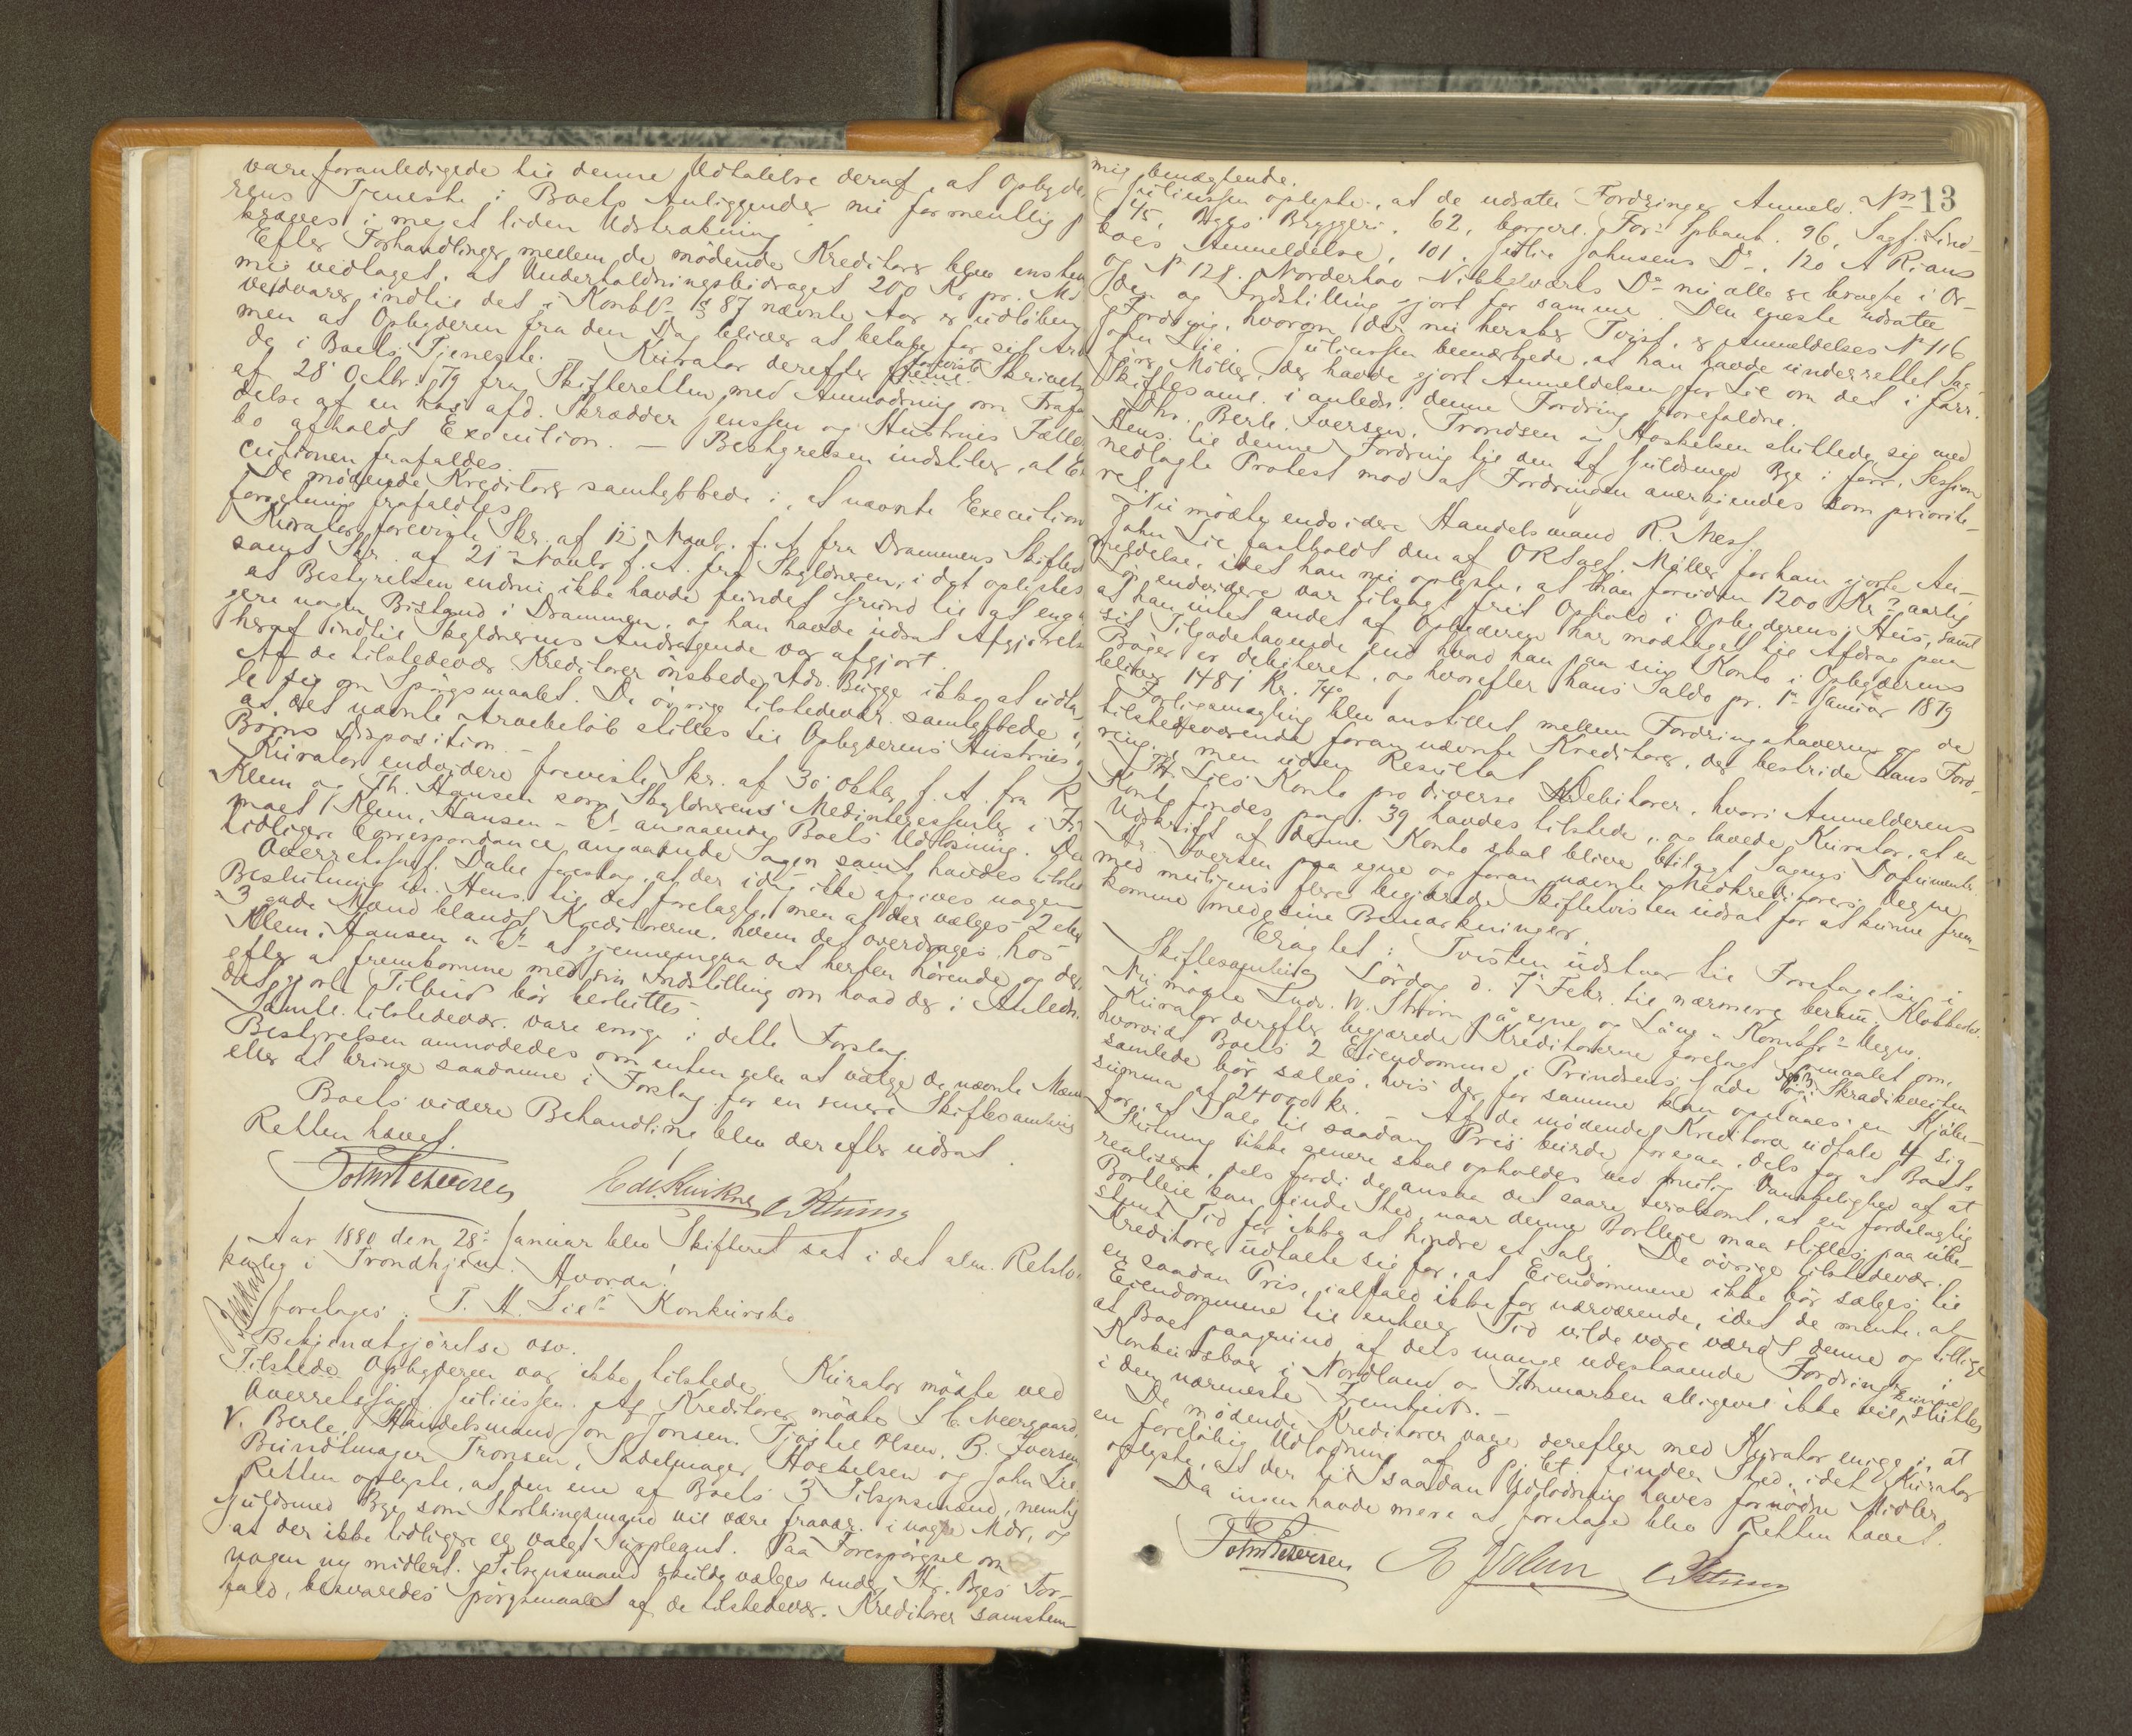 vare foranledigede til denne Udtalelse deraf, at Opbyde-
rens Tjeneste i Boets Anliggender nu formentlig
kræves i meget liden Udstrækning.
Efter Forhandlinger mellem de mødende Kreditorer blev enstem-
mig vedtaget, at Underholdningsbidraget 200 Kr. pr. Md
vedvarer indtil det i Konkl. § 87 nævnte Aar er udløben
men at Opbyderen fra den Dag bliver at betale for sit Ar-
de i Boets Tjeneste. Kurator derefter foreviste Skrivelse
af 28 Octbr. 79 fra Skifteretten med Anmodning om Frafa
delse af en hos afd. Skrædder Jenssen og Hustrues Fælles
bo afholdt Execution. — Bestyrelsen indstiller, at Ex
cutionen frafaldes.
De mødende Kreditorer samtykkede i, at nævnte Execution
forretning frafaldtes.
Kurator foreviste Skr. af 12 Novbr. f. A. fra Drammens Skifteret
samt Skr. af 21 Novbr. f. A. fra Skyldneren, idet oplystes
at Bestyrelsen endnu ikke havde fundet Grund til at enga
gere nogen Bistand i Drammen, og han havde udsat Afgjørelse
heraf indtil Skyldnerens Andragende var afgjort.
Af de tilstedevær. Kreditorer ønskede Adv. Bugge ikke at udta-
le sig om Spørgsmaalet. De øvrige tilstedevær. samtykkede i,
at det nævnte Arvebeløb stilles til Opbyderens Hustrues
Børns Disposition. —
Kurator endvidere foreviste Skr. af 30 Oktbr. f. A. fra R
Klem og Th. Hansen som Skyldnerens Medinteressenter i Fir
maet Klem, Hansen & Co angaaende Boets Udløsning. Den
tidligere Correspondance angaaende Sagen samt havdes tilstede
Overretssagf. Dahl foreslog, at der idag ikke afgives nogen
Beslutning m. Hens. til det forelagte, men at der vælges 2 eller
3 gode Mænd blandt Kreditorerne, hvem det overdrages hos
Klem, Hansen & Co at gjennemgaa det herhen hørende og der-
efter at fremkomme med sin Indstilling om hvad der i Anledn.
det gjorte Tilbud bør besluttes.
Samtl. tilstedevær. vare enige i dette Forslag.
Bestyrelsen anmodedes om enten selv at vælge de nævnte Mænd
eller at bringe saadanne i Forslag for en senere Skiftesamling
Boets videre Behandling blev derefter udsat.
Retten hævet.
Aar 1880 den 28 Januar blev Skifteret sat i det alm. Retslo-
kale i Trondhjem. Hvorda!
foretages: T. M. Lies Konkursbo
Bekjendtgjørelse osv.
Tilstede Opbyderen var ikke tilstede. Kurator mødte ved
Overretssagf. Juliussen. Af Kreditorer mødte S C Neergaard,
V. Berle, Handelsmand Jon Jonsen, Tjøstel Olsen, B. Iversen
Bundtmager Tronsen, Sadelmager Hoskelsen og John Lie
Retten oplyste, at den ene af Boets 3 Tilsynsmænd, nemlig
Guldsmed Bye, som Storthingsmand vil være fravær. i nogle Mdr, og
at der ikke tidligere er valgt Suppleant. Paa Forespørgsel om
nogen ny midlert. Tilsynsmand skulde vælges under Hr. Byes For-
fald, besvaredes Spørgsmaalet af de tilstedevær. Kreditorer samstem-
13
mig benægtende.
Juliussen oplyste, at de udsatte Fordringer Anmeld. No
45, Bryggeri, 62, 96, Sagf. Lind-
boes Anmeldelse, 101, Julie Johnsens Do, 120 A Rians
og No 128. Nordenhav Nikkelværks Do nu alle er bragte i Or-
den og Indstilling gjort for samme. Den eneste udsatte
Fordring, hvorom der nu hersker Tvist, er Anmeldelses No 116
John Lie. Juliussen bemærkede, at han havde underrettet Sag-
fører Møller, der havde gjort Anmeldelsen for Lie om det i forr.
Skiftesaml. i anledn. denne Fordring forefaldne.
Hr. Berle, Iversen, Trondsen og Hoskelsen sluttede sig med
Hens. til denne Fordring til den af Guldsmed Bye i forr. Session
nedlagte Protest mod at Fordringen anerkjendes som priorite-
ret.
Nu mødte endvidere Handelsmand R. Ness.
John Lie fastholdt den af ORSagf. Møller for ham gjorte An-
meldelse, idet han nu oplyste, at han foruden 1200 Kr. aarlig
Løn endvidere var tilsagt frit Ophold i Opbyderens Hus, samt
at han intet andet af Opbyderen har modtaget til Afdrag paa
sit Tilgodehavende end hvad han paa sin Konto i Opbyderens
Bøger er debiteret, og hvorefter hans Saldo pr. 1 Januar 1879
bliver 1481 Kr. 74 ø.
Forligsmægling blev anstillet mellem Fordringshaveren og de
tilstedeværende foran nævnte Kreditorer, der bestride hans Ford-
ring, men uden Resultat.
T. M. Lies Konto pro diverse Debitorer, hvori Anmelderens
Konto findes pag. 39 havdes tilstede, og lovede Kurator, at en
Udskrift af denne Konto skal blive tilagt Sagens Dokumenter.
Hr. Iversen paa egne og foran nævnte Medkreditorers Vegne
med muligens flere begjærede Skiftetvisten udsat for at kunne frem-
komme med sine Bemærkninger.
Eragtet: Tvisten udstaar til Foretagelse i
Skiftesamling Lørdag d. 7 Febr. til nærmere berammet Klokkeslet.
Nu mødte Ludv. W. Strøm paa egne og Lång & Komps. Vegne.
Kurator derefter begjærede Kreditorerne forelagt Spmaalet om,
hvorvid Boets 2 Eiendomme i Prindsens Gade og Skradikveiten
samlede bør sælges, hvis der for samme kan opnaaes en Kjøbe-
summa af 24000 kr. — Af de mødende Kreditorer udtale 4 sig
for, at Salg til saadan Pris burde foregaa, dels for at Boets
Slutning ikke senere skal opholdes ved mulig Vanskelighed af at
realisere, dels fordi de ansaa det saare tvivlsomt, at en fordelagtig
Bortleie kan finde Sted, naar denne Bortleie maa stilles paa ube-
stemt Tid for ikke at hindre et Salg. De øvrige tilstedevær.
Kreditorer udtalte sig for, at Eiendommene ikke bør sælges til
en saadan Pris, ialfald ikke for nærværende, idet de mente, at
Eiendommene til enhver Tid vilde være værdt denne og tillige
at Boet paagrund af dets mange udestaaende Fordringer i
Konkursboer i Nordland og Finmarken alligevel ikke vil kunne sluttes
i den nærmeste Fremtid. —
De mødende Kreditorer vare derefter med Kurator enige i, at
en foreløbig Udlodning af 8 pCt. finder Sted, idet Kurator
oplyste, at der til saadan Udlodning haves fornødne Midler.
Da ingen havde mere at foretage blev Retten hævet.